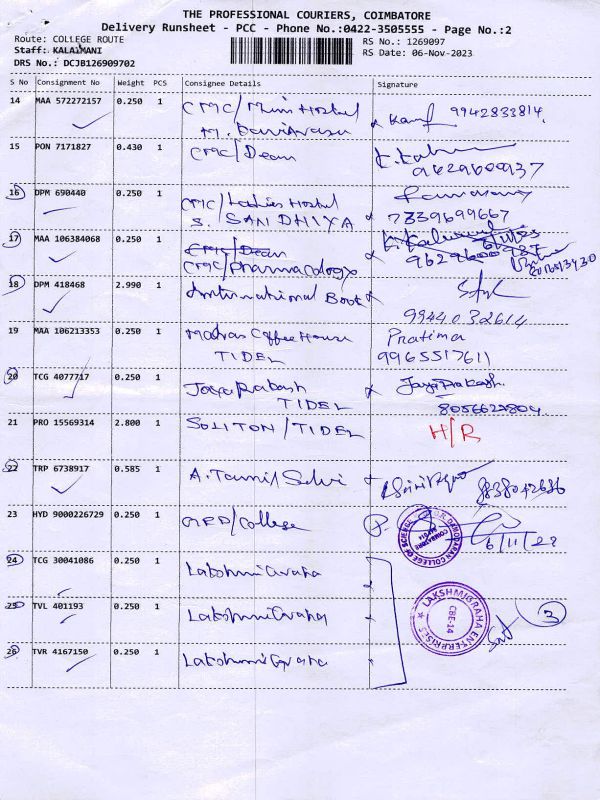 THE PROFESSIONAL COURIERS, COIMBATORE
Delivery Runsheet - PCC - Phone No.:0422-3505555 - Page No.:2
Route: COLLEGE ROUTE
RS No.: 1269097
Staff: KALAIMANI
RS Date: 06-Nov-2023
DRS No.: DCJB126909702
S No Consignment No Weight PCS Consignee Details Signature
14 MAA 572272157 0.250 1 9942833814
15 PON 7171827 0.430 1 CMC/Dean
9629600937
16 DPM 690440 0.250 1 CMC/Ladies Hostel
S. SANDHIYA 7339699667
17 MAA 106384068 0.250 1 CMC/Dean
CMC/Pharmacology
18 DPM 418468 2.990 1 International Book
9944032614
19 MAA 106213353 0.250 1 Madras Coffee House Pratima
TIDEL 9965517611
20 TCG 4077717 0.250 1 Jayaprakash Jayaprakash
TIDEL
21 PRO 15569314 2.800 1 SOLITON/TIDEL H/R
22 TRP 6738917 0.585 1 A. Tamil Selvi
23 HYD 9000226729 0.250 1 /College
24 TCG 30041086 0.250 1 Lakshmi Graha
25 TVL 401193 0.250 1 Lakshmi Graha
LAKSHMIGRAHA ENTERPRISES
CBE-14
3
26 TVR 4167150 0.250 1 Lakshmi Graha